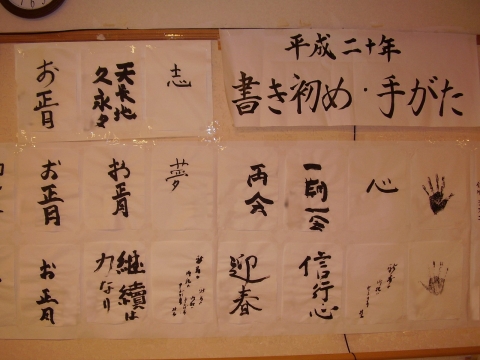 平成二十年
書き初め・手がた
志
天大地
久永々
お正月
心
一期一会
再会
夢
お正月
お正月
信行心
迎春
継続は
力なり
お正月